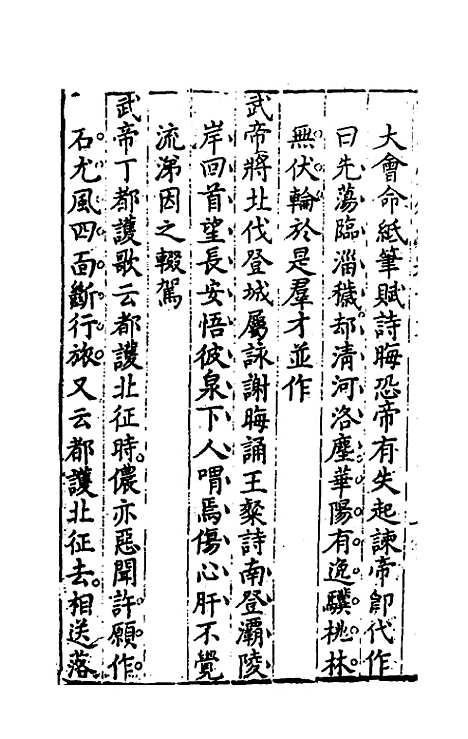 大會命紙筆賦詩晦恐帝有失起諫帝卽代作
曰先蕩臨淄穢却清河洛塵華陽有逸驥桃林
無伏輪於是羣才並作
武帝將北伐登城屬詠謝晦誦王粲詩南登灞陵
岸回首望長安悟彼泉下人喟焉傷心肝不覺
流涕因之輟駕
武帝丁都護歌云都護北征時儂亦惡聞許願作
石尤風四面斷行旅又云都護北征去相送落